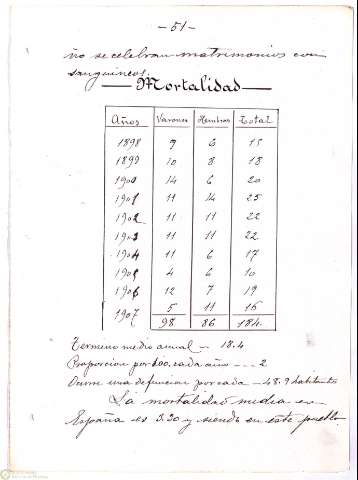 -51-
ño se celebran matrimonios con
sanguineos.
Mortalidad
Años Varones Hembras Total
1898 9 6 15
1899 10 8 18
1900 14 6 20
1901 11 14 25
1902 11 11 22
1903 11 11 22
1904 11 6 17
1905 4 6 10
1906 12 7 19
1907 5 11 16
98 86 184
Termino medio anual - 18.4
Proporcion por 100. cada año --- 2
Ocurre una defuncion por cada - 48.9 habitantes
La mortalidad media en
España es 3.30 y siendo en este pueblo